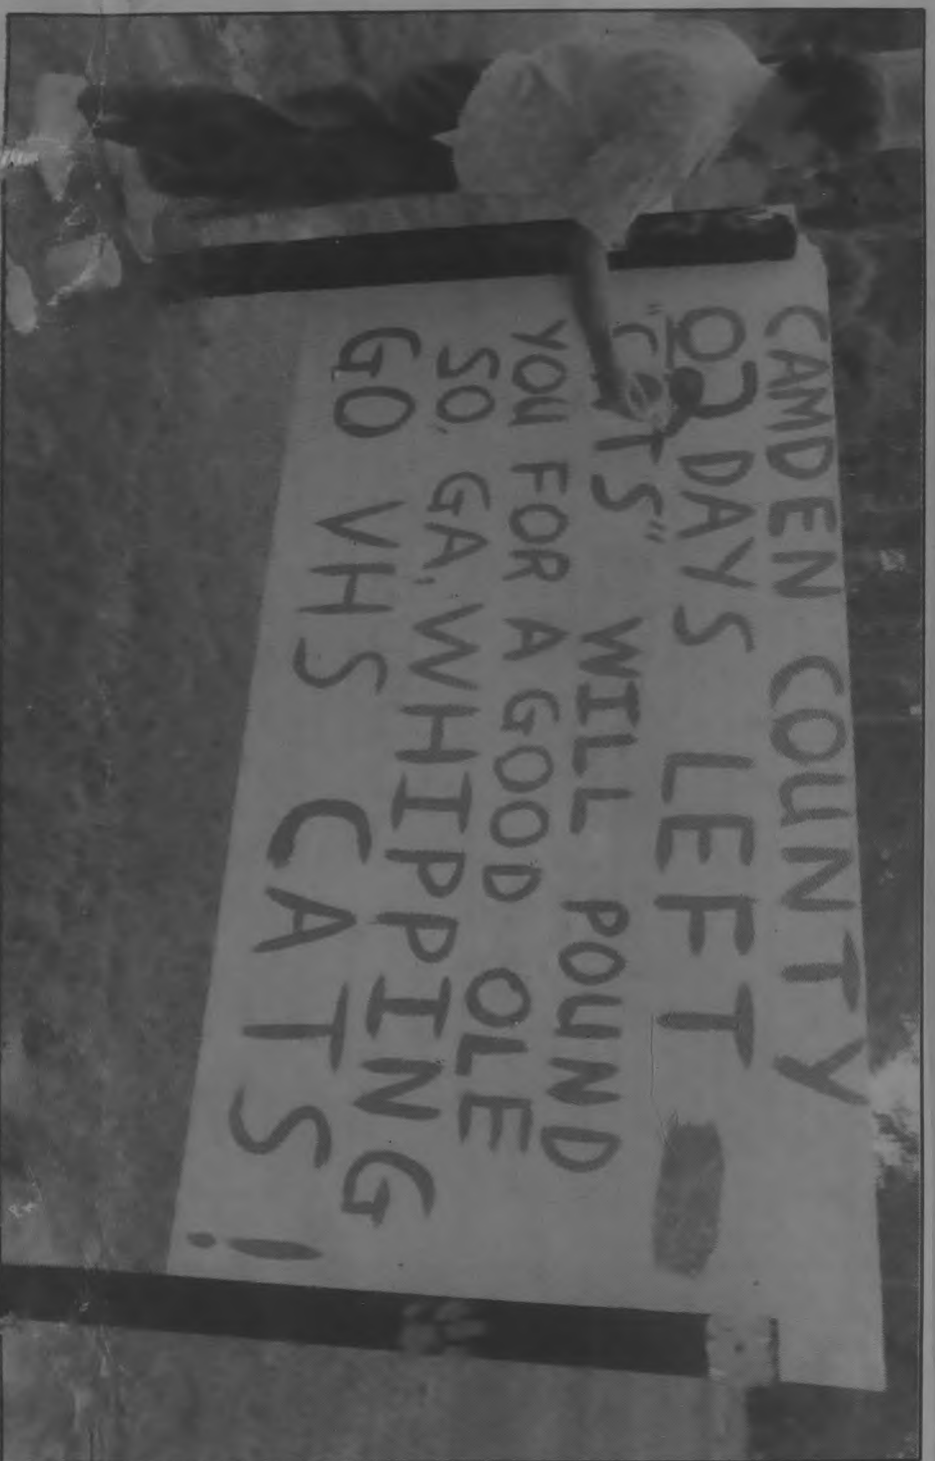 CAMDEN COUNTY
DAYS LEFT
WILL POUND
YOU FOR A GOOD OLE
SO. GA. WHIPPING
GO VHS CATS!